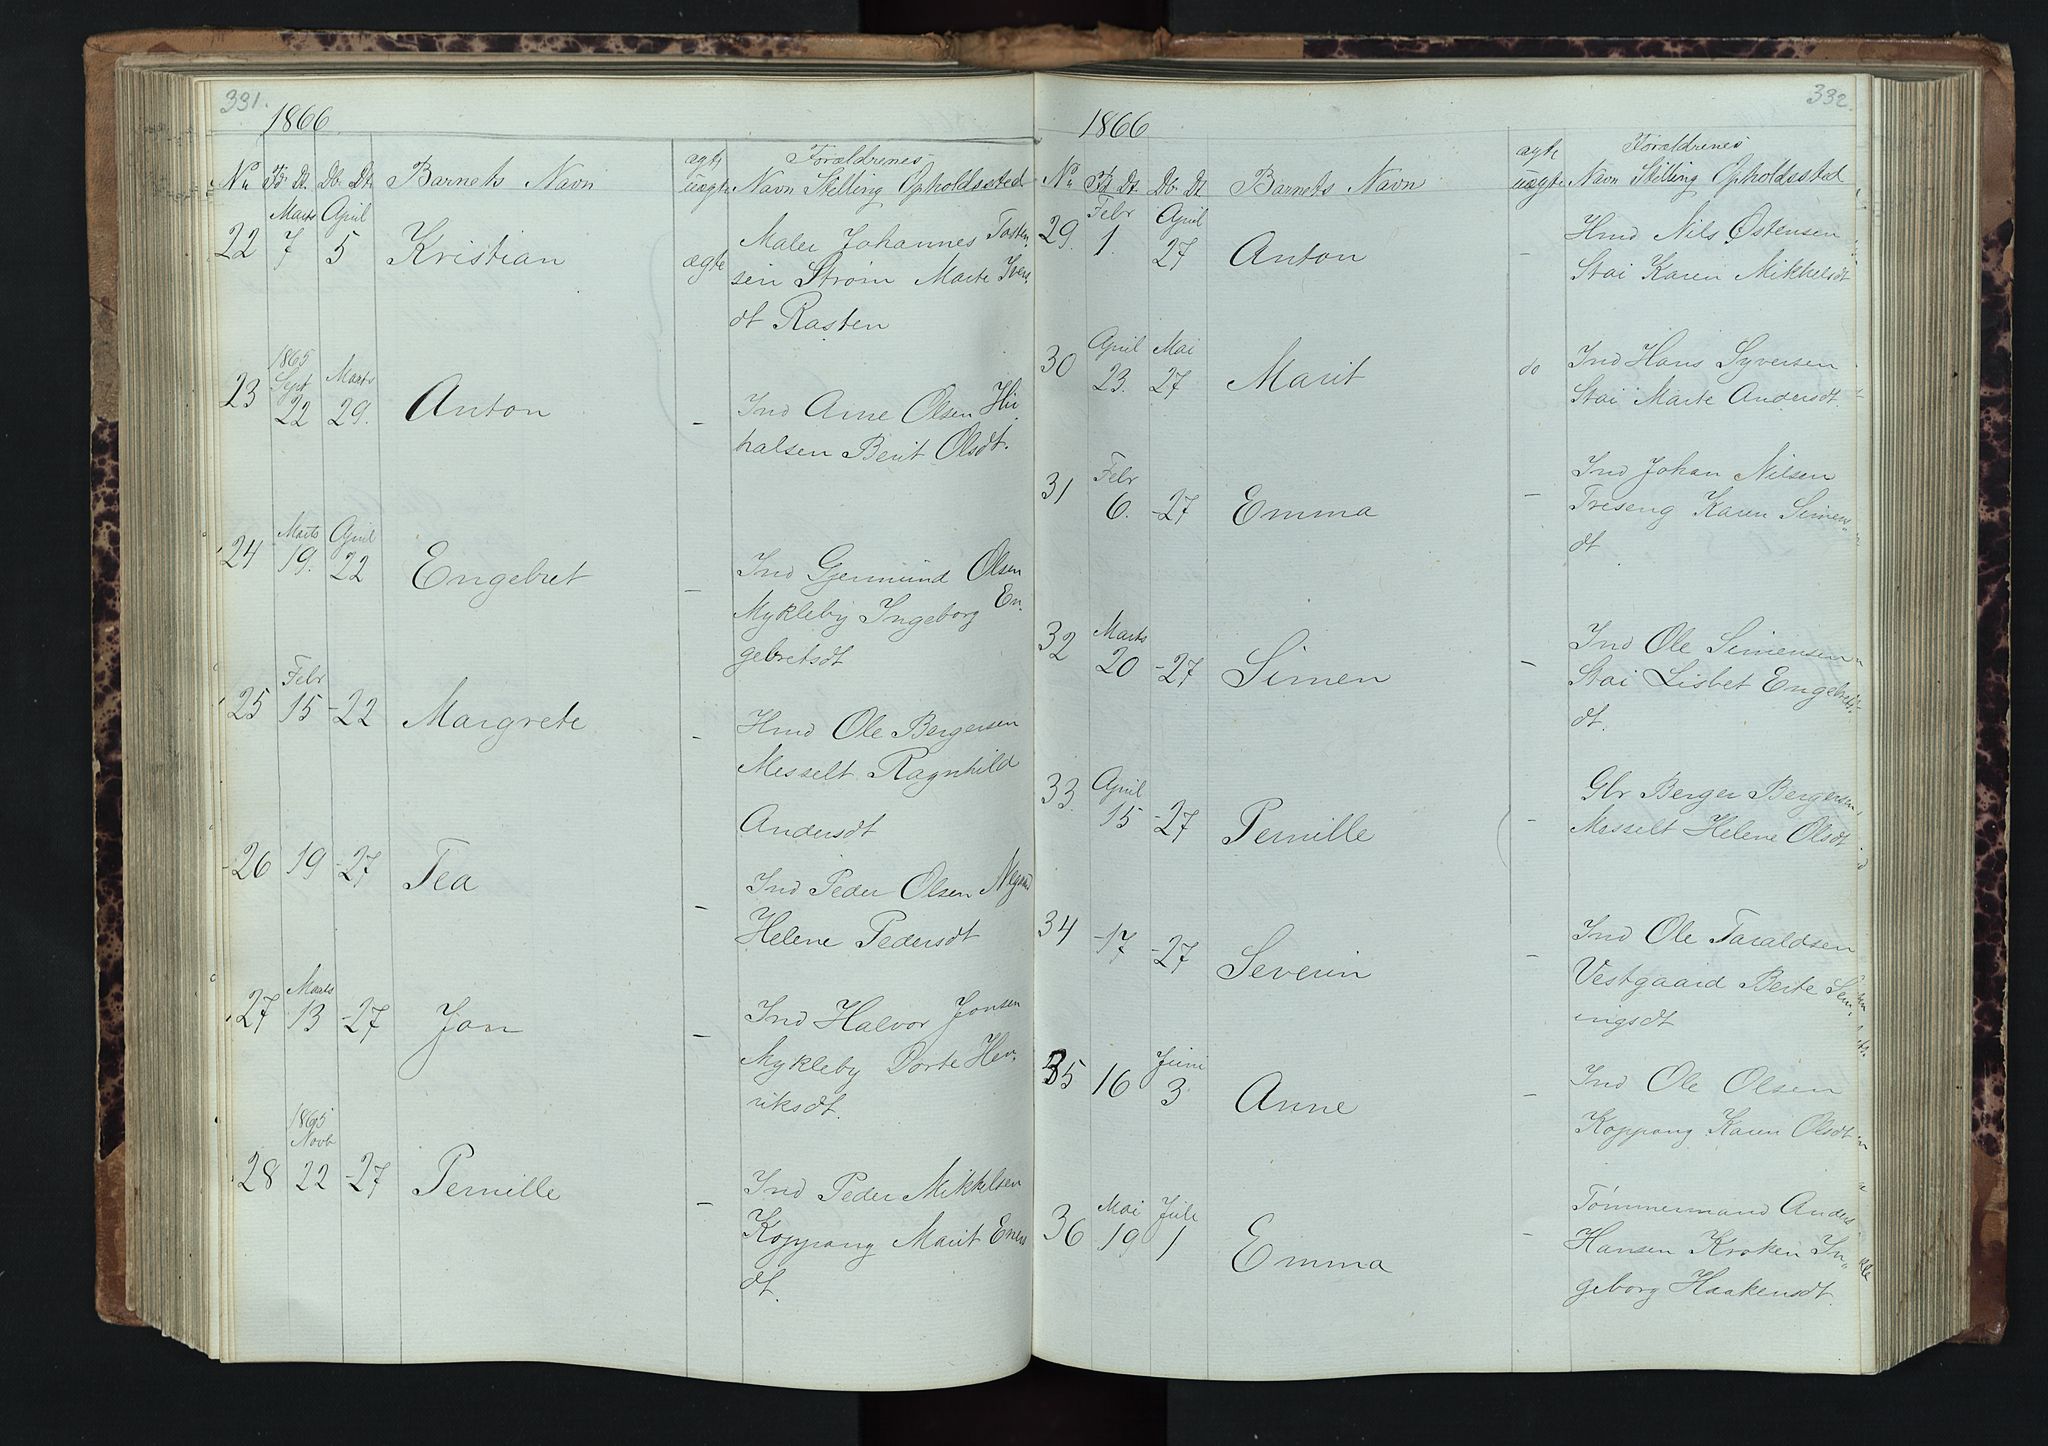 331.
1866
No Fd. Dt. Db. Dt. Barnets Navn ægte uægte Forældrenes Navn Stilling Opholdssted
22 Marts 7 April 5 Kristian ægte Maler Johannes Tosten
sen Strøm Marte Ivers
dt Rasten
23 1865 Sept 22 Marts 29. Anton - Ind Arne Olsen
Berit Olsdt.
24 Marts 19. April 22 Engebret - Ind Gjermund Olsen
Mykleby Ingeborg En-
gebretsdt
25 Febr 15 -22 Margrete - Hmd Ole Bergersen
Messelt Ragnhild
Andersdt
26 19 -27 Tea - Ind Peder Olsen
Helene Pedersdt
27 Marts 13 -27 Jon - Ind Halvor Jonsen
Mykleby Dorte Hen-
riksdt.
28 1865 Novb 22 -27 Pernille - Ind Peder Mikkelsen
Koppang Marit
dt.
332.
1866
No Fd Dt. Db Dt Barnets Navn ægte uægte Forældrenes Navn Stilling Opholdssted
29. Febr 1. April 27 Anton - Hmd Nils Østensen
Stai Karen Mikkelsdt
30 April 23. Mai 27 Marit do Ind Hans Syversen
Stai Marte Andersdt.
31 Febr 6. -27 Emma - Ind Johan Nilsen
Treseng Karen Simens-
dt
32 Marts 20 -27 Simen - Ind Ole Simensen
Stai Lisbet Engebrets-
dt.
33. April 15 -27 Pernille - Gbr Berger Bergersen
Messelt Helene Olsdt
34 -17 -27 Severin - Ind Ole Taraldsen
Vestgaard Berte Sem-
ingsdt
35 16 Juni 3 Anne - Ind Ole Olsen
Koppang Karen Olsdt
36 Mai 19 Juli 1 Emma - Tømmermand Anders
Hansen Kroken In-
geborg Haakensdt.